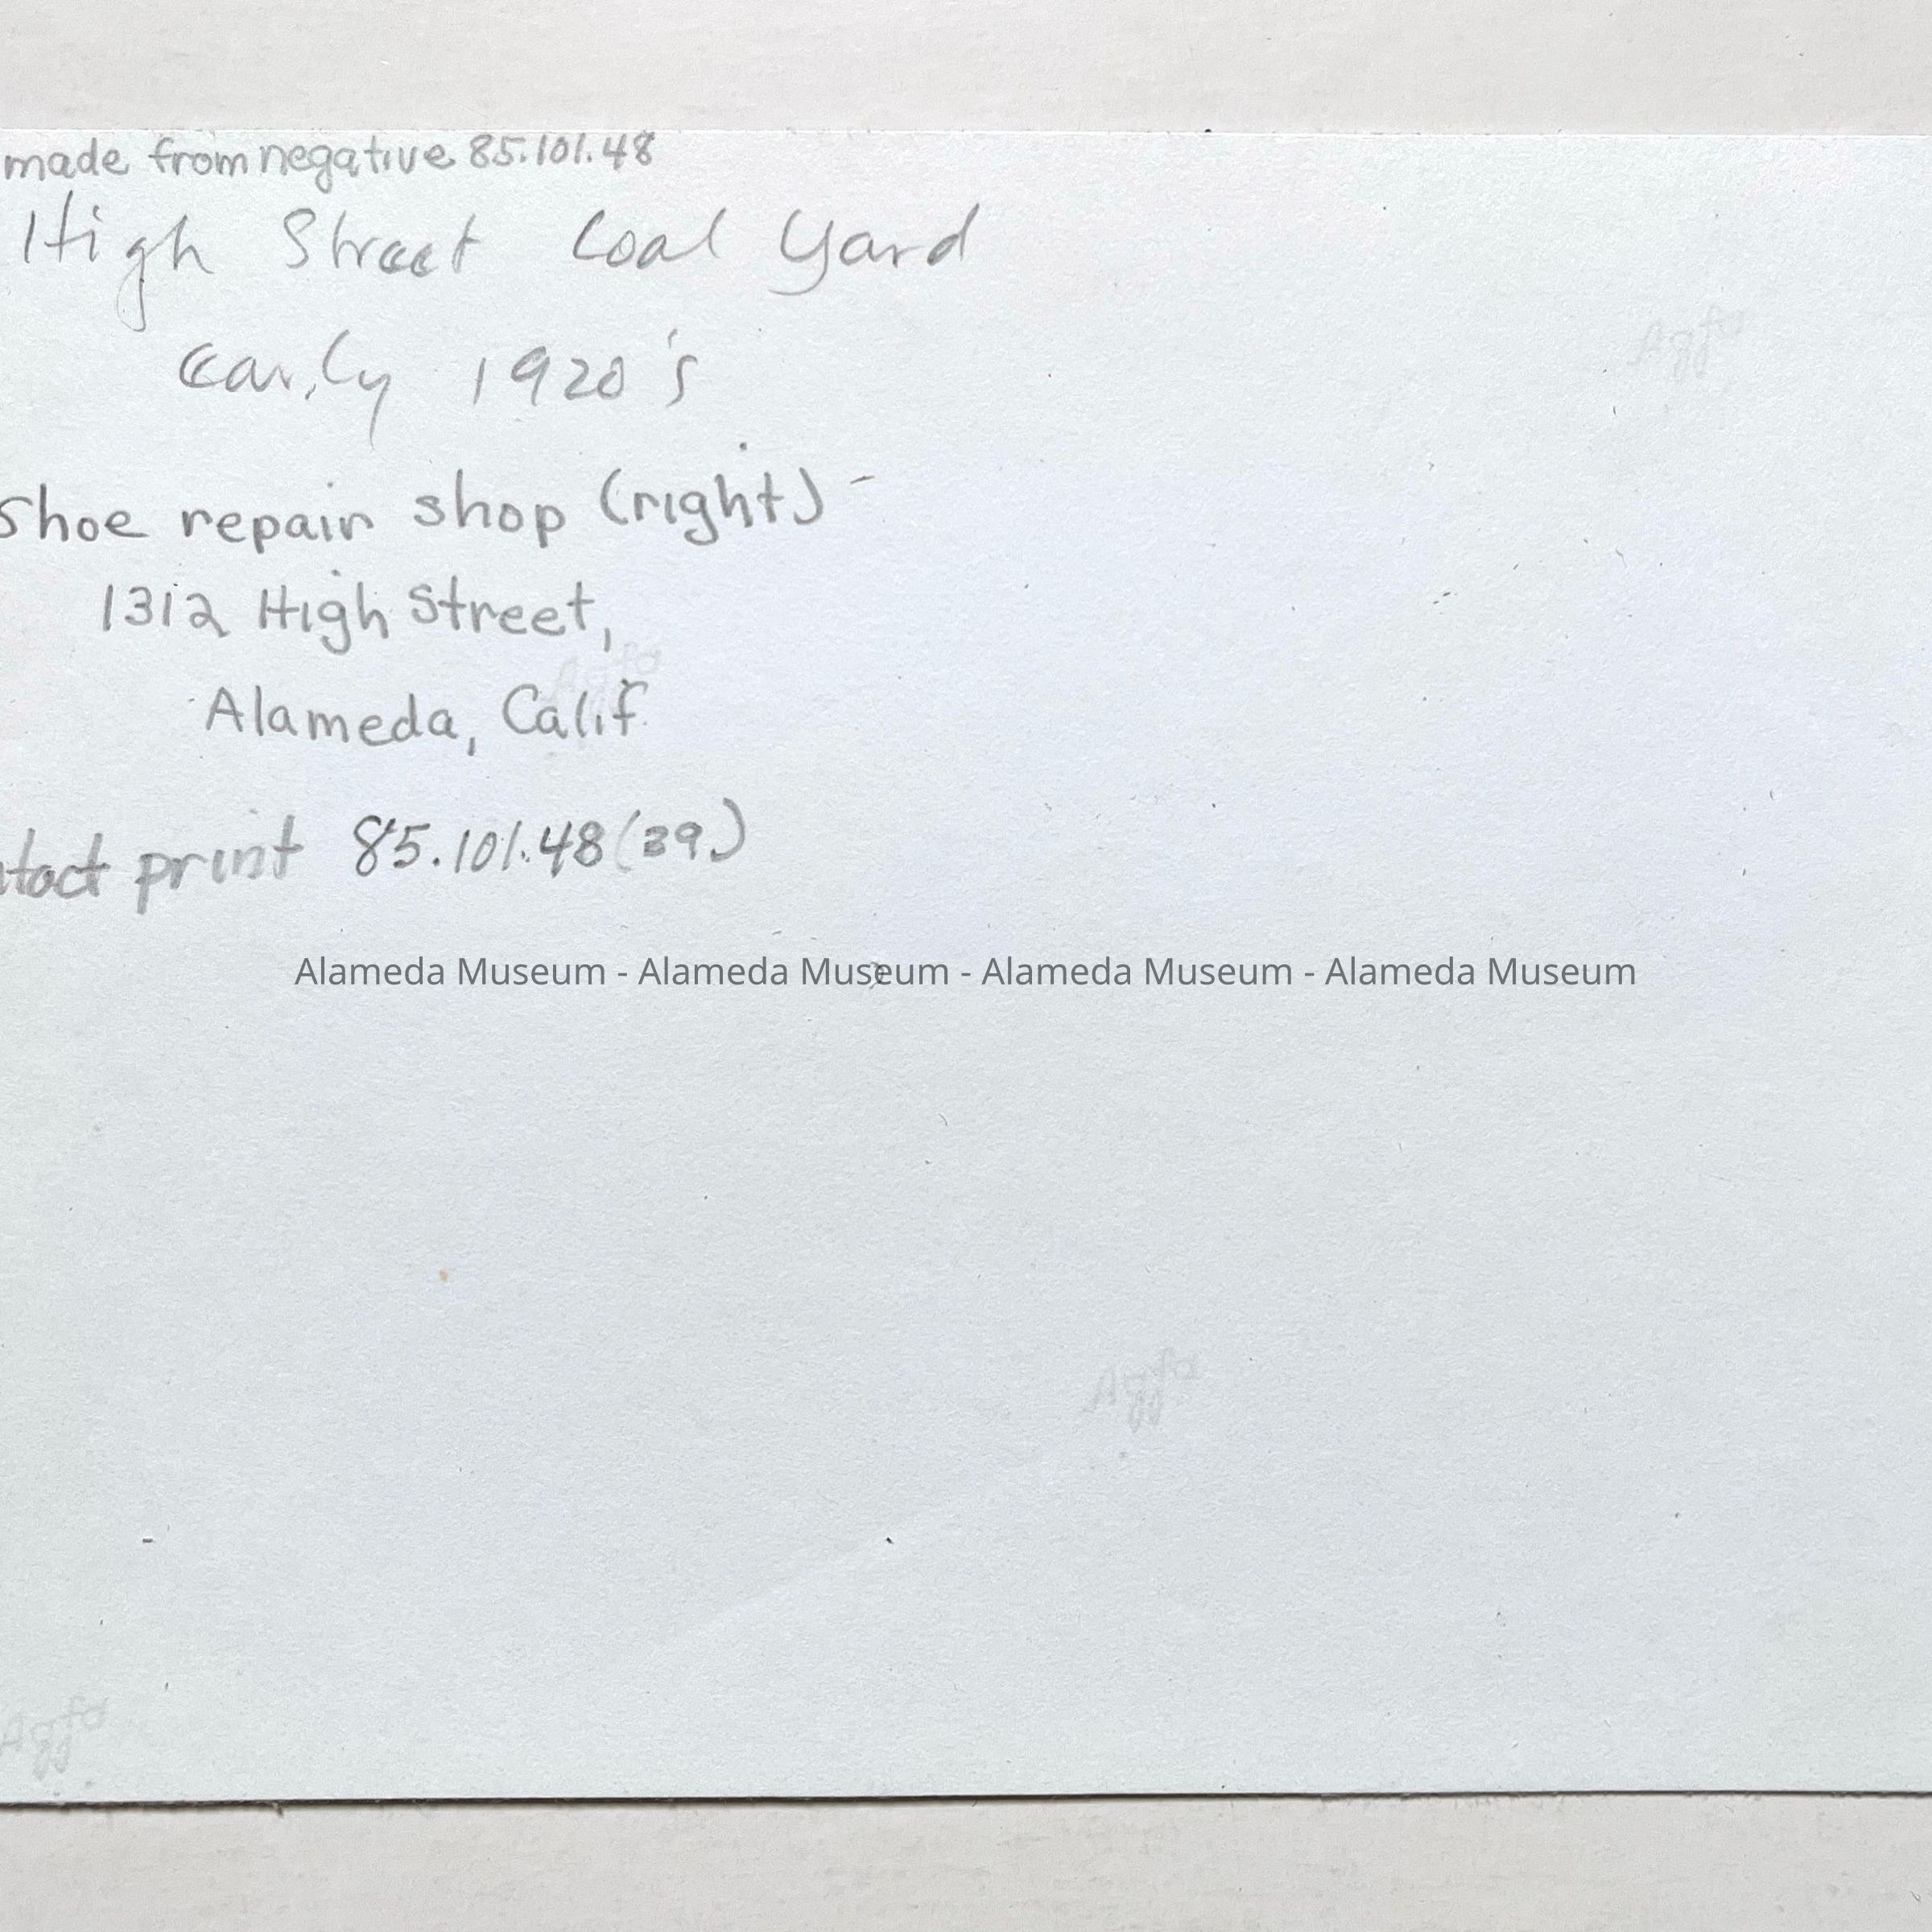 made from negative 85.101.48
High Street Coal Yard
early 1920's
Shoe repair shop (right) -
1312 High Street,
Alameda, Calif.
ntact print 85.101.48(39)
Alameda Museum - Alameda Museum - Alameda Museum - Alameda Museum
Agfa
Agfa
Agfa
Agfa